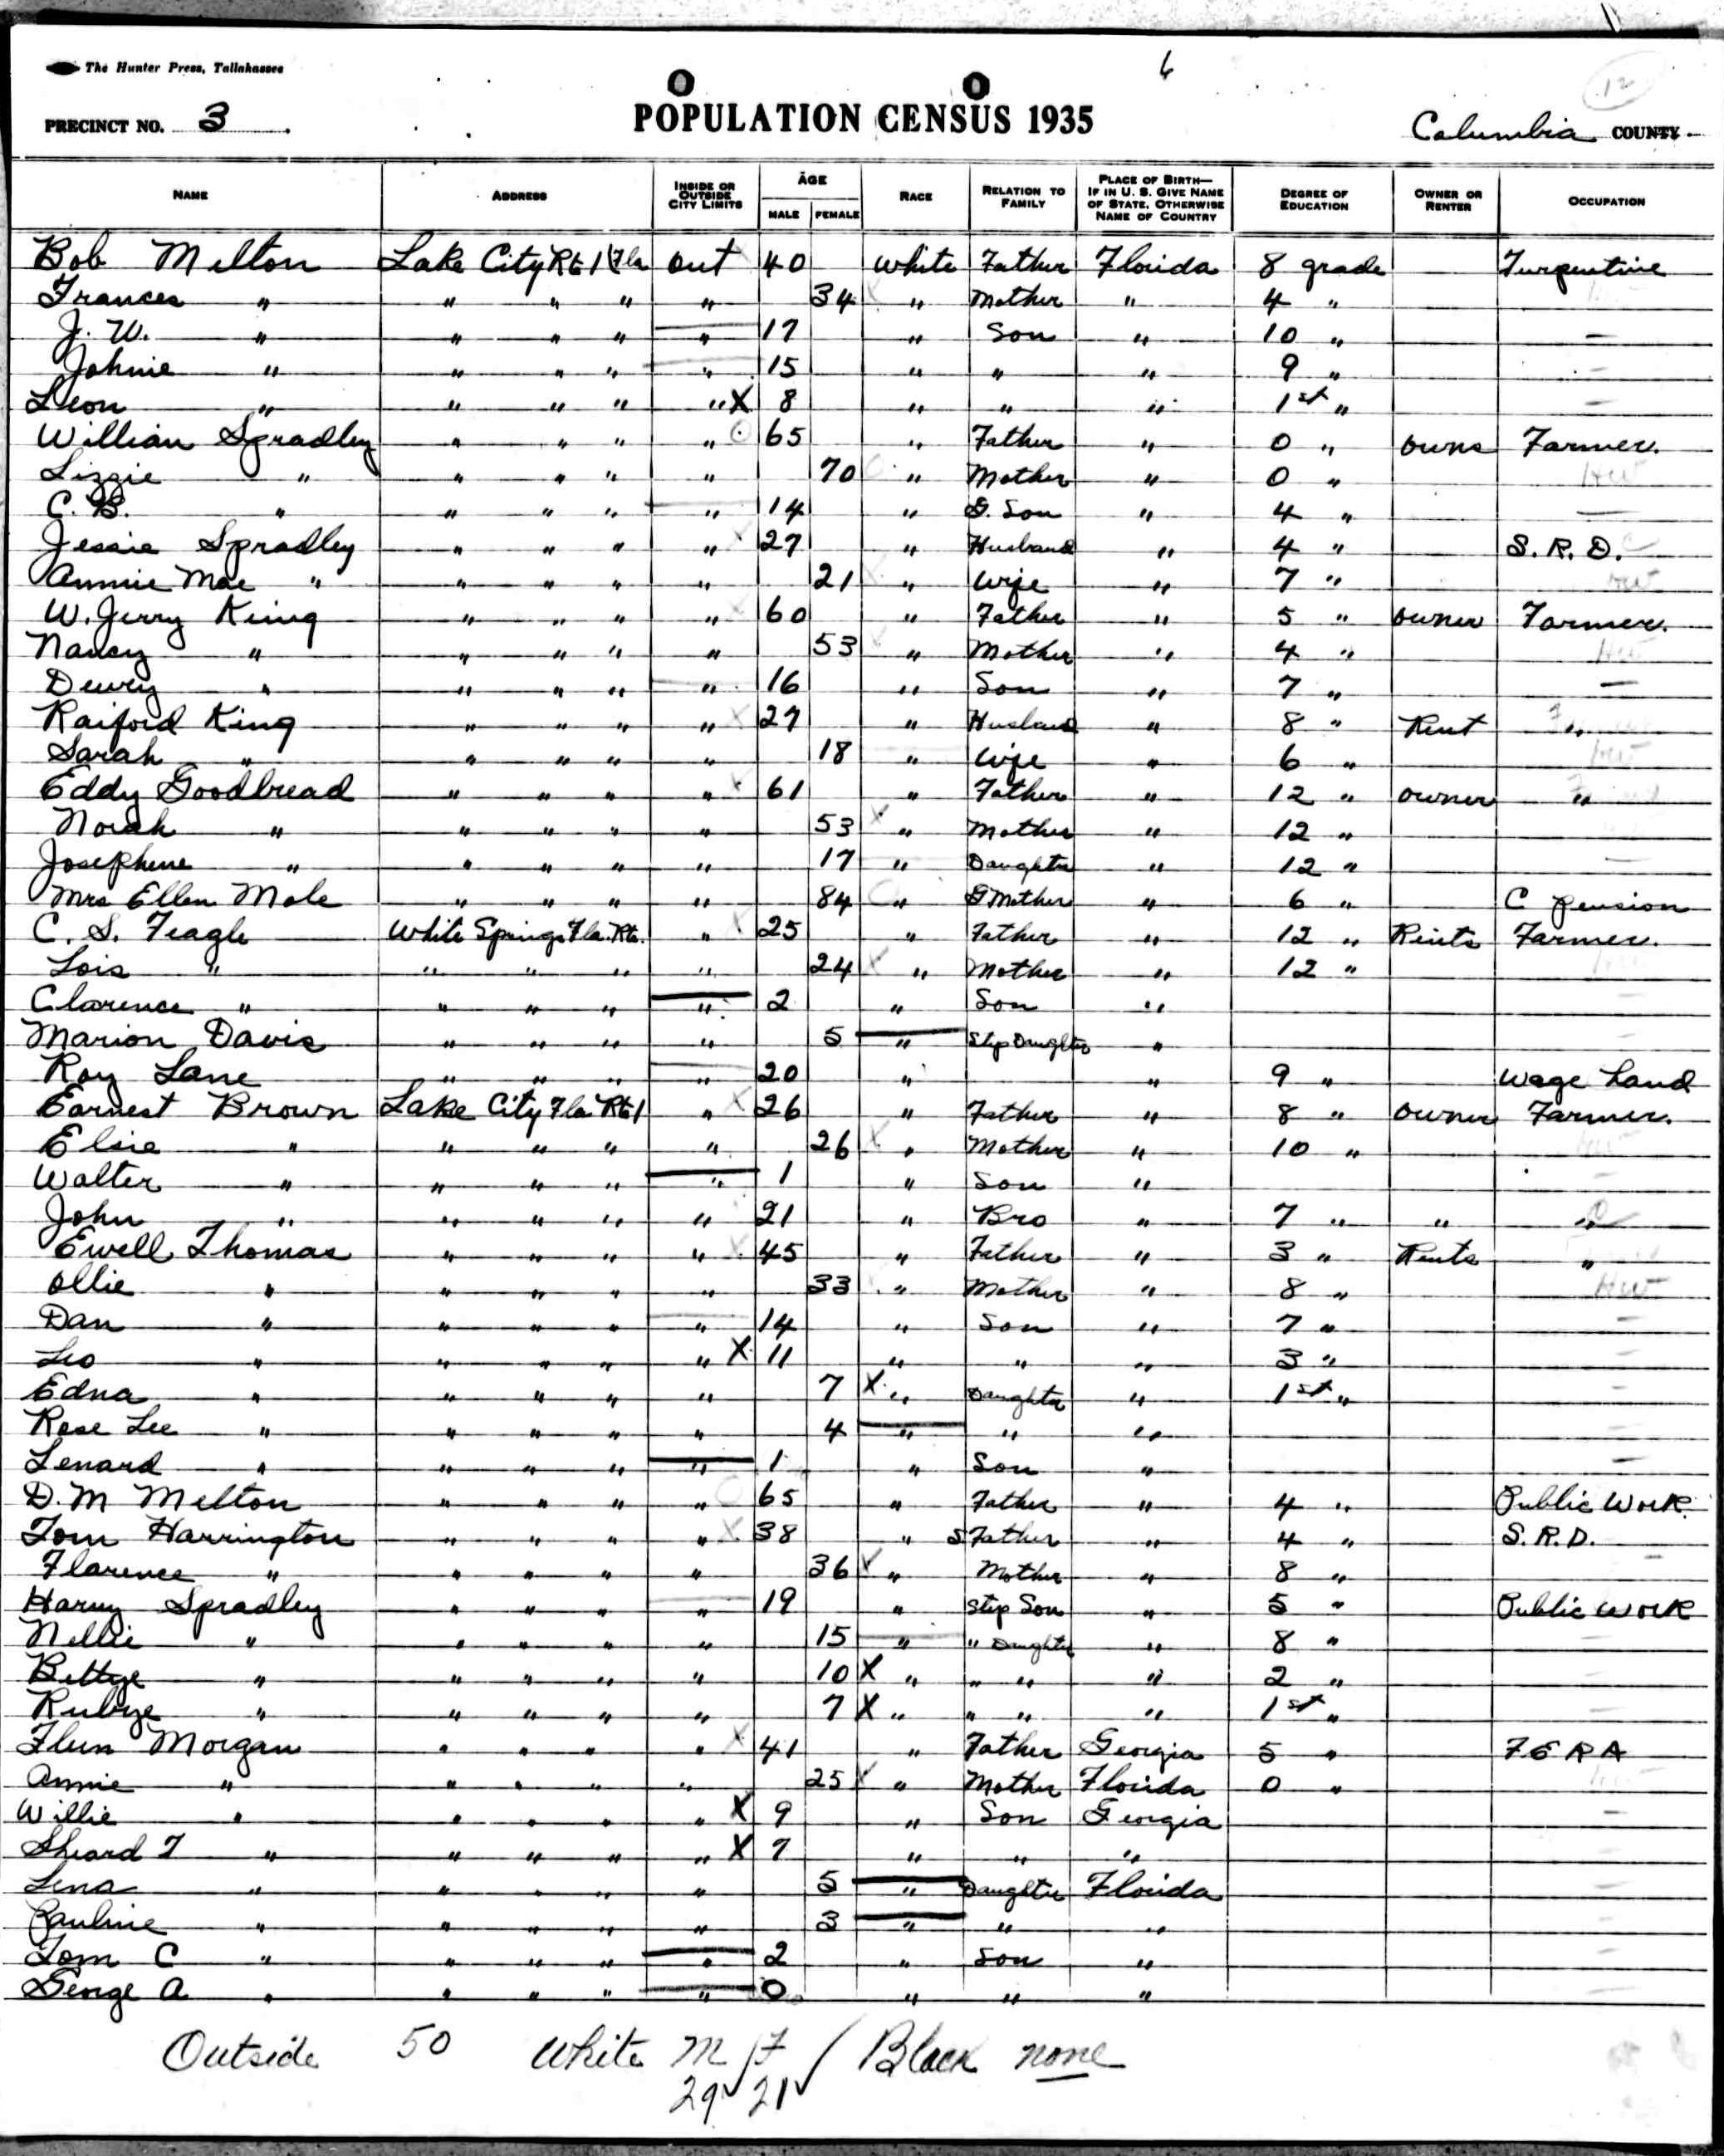 The Hunter Press, Tallahassee
6
12
PRECINCT NO. 3
POPULATION CENSUS 1935
Columbia COUNTY
NAME ADDRESS INSIDE OR OUTSIDE CITY LIMITS AGE MALE FEMALE RACE RELATION TO FAMILY PLACE OF BIRTH—IF IN U. S. GIVE NAME OF STATE, OTHERWISE NAME OF COUNTRY DEGREE OF EDUCATION OWNER OR RENTER OCCUPATION
Bob Melton Lake City Rt 1 Fla out 40 White Father Florida 8 grade Turpentine
Frances " " " " " 34 " Mother " 4 "
J. W. " " " " " 17 " Son " 10 " –
Johnie " " " " " 15 " " " 9 " –
Leon " " " " " X 8 " " " 1st " –
William Spradley " " " " 65 " Father " 0 " owns Farmer.
Lizzie " " " " " 70 " Mother " 0 " HW
C. B. " " " " " 14 " G. Son " 4 " –
Jessie Spradley " " " " 27 " Husband " 4 " S. R. D.
Annie Mae " " " " " 21 " Wife " 7 " HW
W. Jerry King " " " " 60 " Father " 5 " owner Farmer.
Nancy " " " " " 53 " Mother " 4 " HW
Dewey " " " " " 16 " Son " 7 " –
Raiford King " " " " 27 " Husband " 8 " Rent "
Sarah " " " " " 18 " Wife " 6 " HW
Eddy Goodbread " " " " 61 " Father " 12 " owner "
Norah " " " " " 53 " Mother " 12 "
Josephine " " " " " 17 " Daughter " 12 " –
Mrs Ellen Mole " " " " 84 " G Mother " 6 " C pension
C. S. Feagle White Springs Fla. Rt. " 25 " Father " 12 " Rents Farmer.
Lois " " " " " 24 " Mother " 12 "
Clarence " " " " " 2 " Son " –
Marion Davis " " " " 5 " Step Daughter " –
Roy Lane " " " " 20 " " 9 " Wage hand
Earnest Brown Lake City Fla Rt 1 " 26 " Father " 8 " owner Farmer.
Elsie " " " " " 26 " Mother " 10 "
Walter " " " " " 1 " Son " –
John " " " " " 21 " Bro " 7 " " "
Ewell Thomas " " " " 45 " Father " 3 " Rents "
Ollie " " " " " 33 " Mother " 8 " HW
Dan " " " " " 14 " Son " 7 " –
Leo " " " " " X 11 " " " 3 " –
Edna " " " " " 7 X " Daughter " 1st " –
Rose Lee " " " " " 4 " " " –
Lenard " " " " " 1 " Son " –
D. M Melton " " " " 65 " Father " 4 " Public Work
Tom Harrington " " " " 38 " S Father " 4 " S. R. D.
Florence " " " " " 36 " Mother " 8 " –
Harry Spradley " " " " 19 " Step Son " 5 " Public Work
Nellie " " " " " 15 " " Daughter " 8 " –
Bettye " " " " " 10 X " " " " 2 " –
Rubye " " " " " 7 X " " " " 1st " –
Morgan " " " " 41 " Father Georgia 5 " F E R A
Annie " " " " " 25 " Mother Florida 0 "
Willie " " " " " X 9 " Son Georgia –
Sheard T " " " " " X 7 " " " –
Lena " " " " " 5 " Daughter Florida –
Pauline " " " " " 3 " " " –
Tom C " " " " " 2 " Son " –
George A " " " " " 0 " " "
Outside 50 White M / F / Black none
29 21